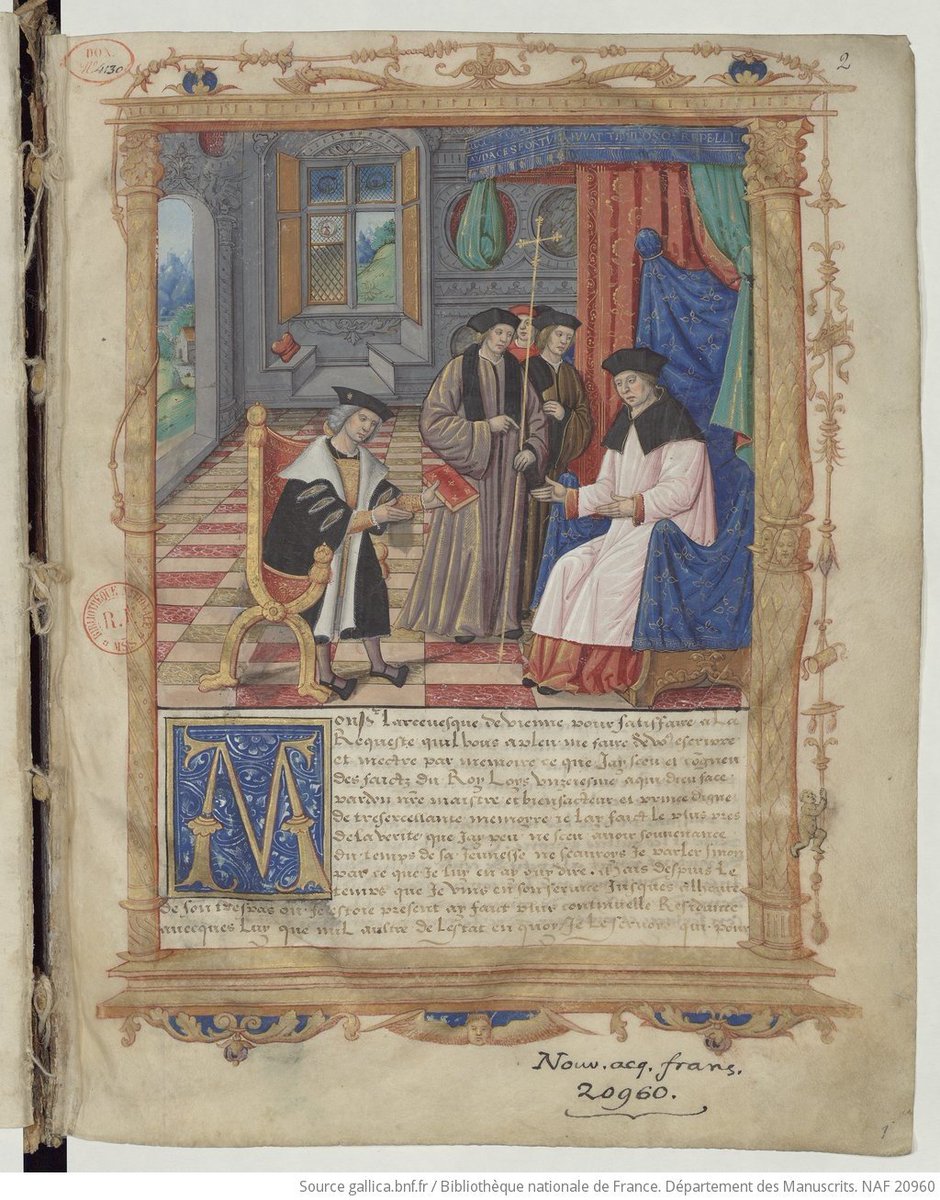 DON.
Nº 4130
2
AUDACES FORTU IUVAT TIMIDOSQ REPELLI
BIBLIOTHEQUE
R.F.
MSS
Monsr Larcevesque de vienne pour satisfaire a La
Requeste quil vous a pleu me faire de vo9 escripre
et mectre par memoire ce que Jay sceu et cogneu
des faictz du Roy Loys unzeiesme a qui dieu face
pardon nre maistre et bienfacteur et prince digne
de tresexcellante memoyre je Lay faict le plus pres
de la verite que Jay peu ne sceu avoir souvenance
Du temps de sa Jeunesse ne scauroys Je parler sinon
par ce que Je luy en ay ouy dire. Mais despuis Le
temps que Je vins en son service Jusques a lheure
de son trespas ou Jestoie present ay faict plus continuelle Residance
avecques Luy que nul aultre de Lestat en quoy Je Le servoye qui pour
Nouv. acq. franç.
20960.
1
Source gallica.bnf.fr / Bibliothèque nationale de France. Département des Manuscrits. NAF 20960